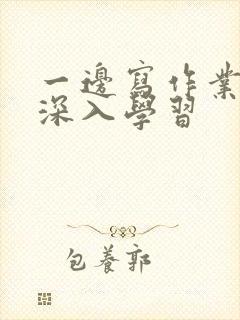 一邊寫作業
深入學習
包養郭